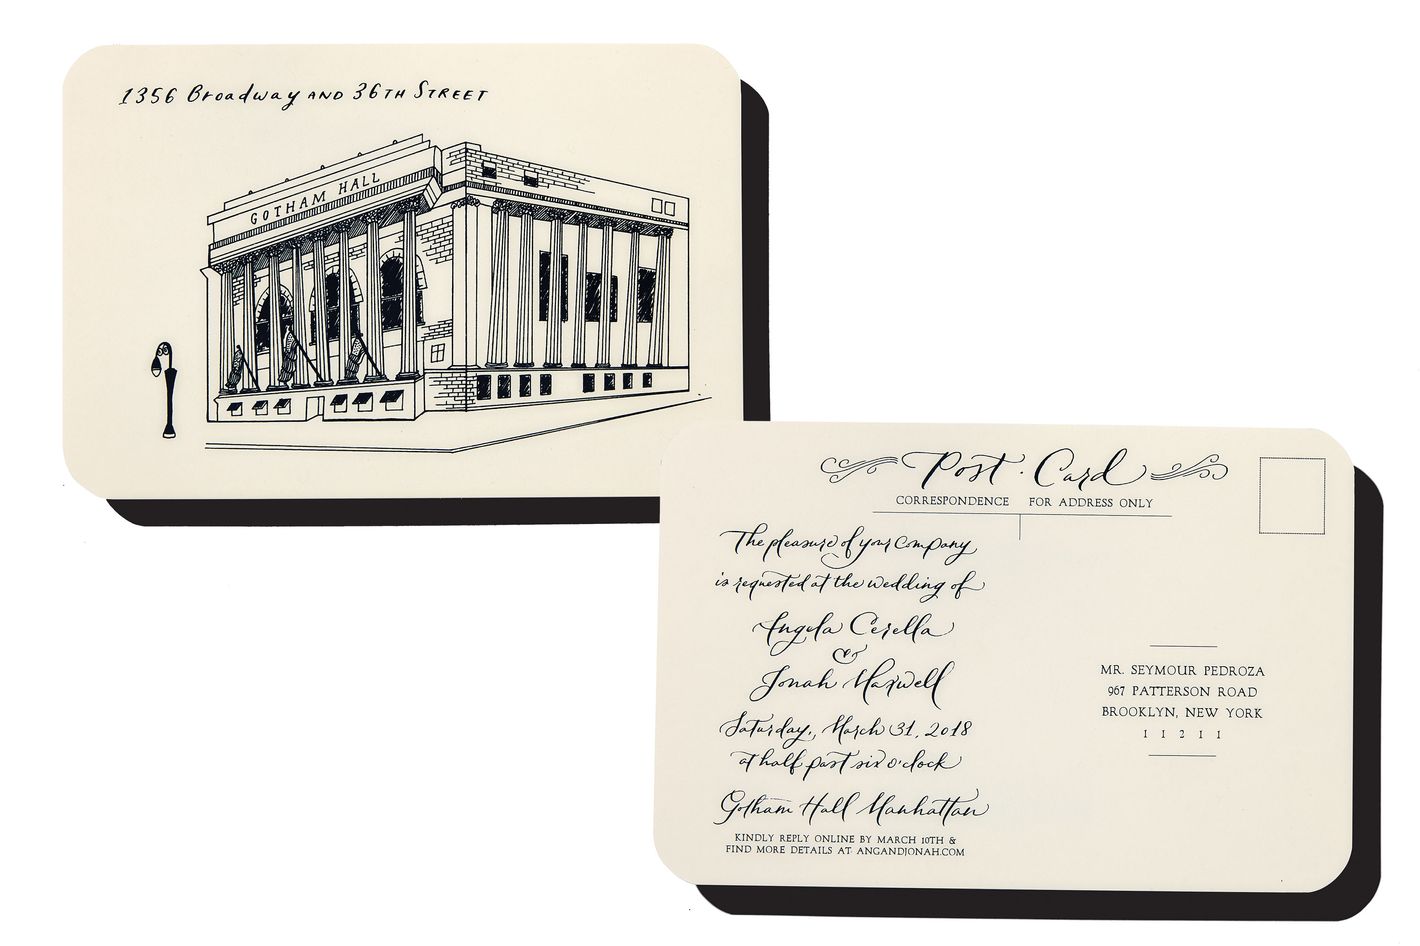 1356 Broadway AND 36TH STREET
GOTHAM HALL
Post · Card
CORRESPONDENCE FOR ADDRESS ONLY
The pleasure of your company
is requested at the wedding of
Angela Cerella
&
Jonah Maxwell
Saturday, March 31, 2018
at half past six o'clock
Gotham Hall Manhattan
KINDLY REPLY ONLINE BY MARCH 10TH &
FIND MORE DETAILS AT ANGANDJONAH.COM
MR. SEYMOUR PEDROZA
967 PATTERSON ROAD
BROOKLYN, NEW YORK
11211